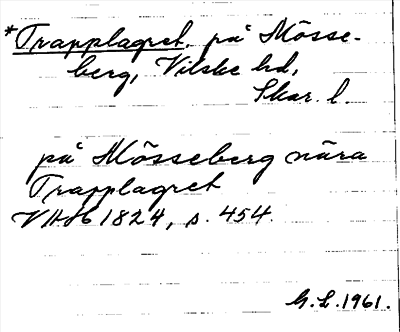 *Trapplagret, på Mösse-
berg, Vilske hd,
Skar. l.
på Mösseberg nära
Trapplagret
VAH 1824, s. 454.
G.L. 1961.